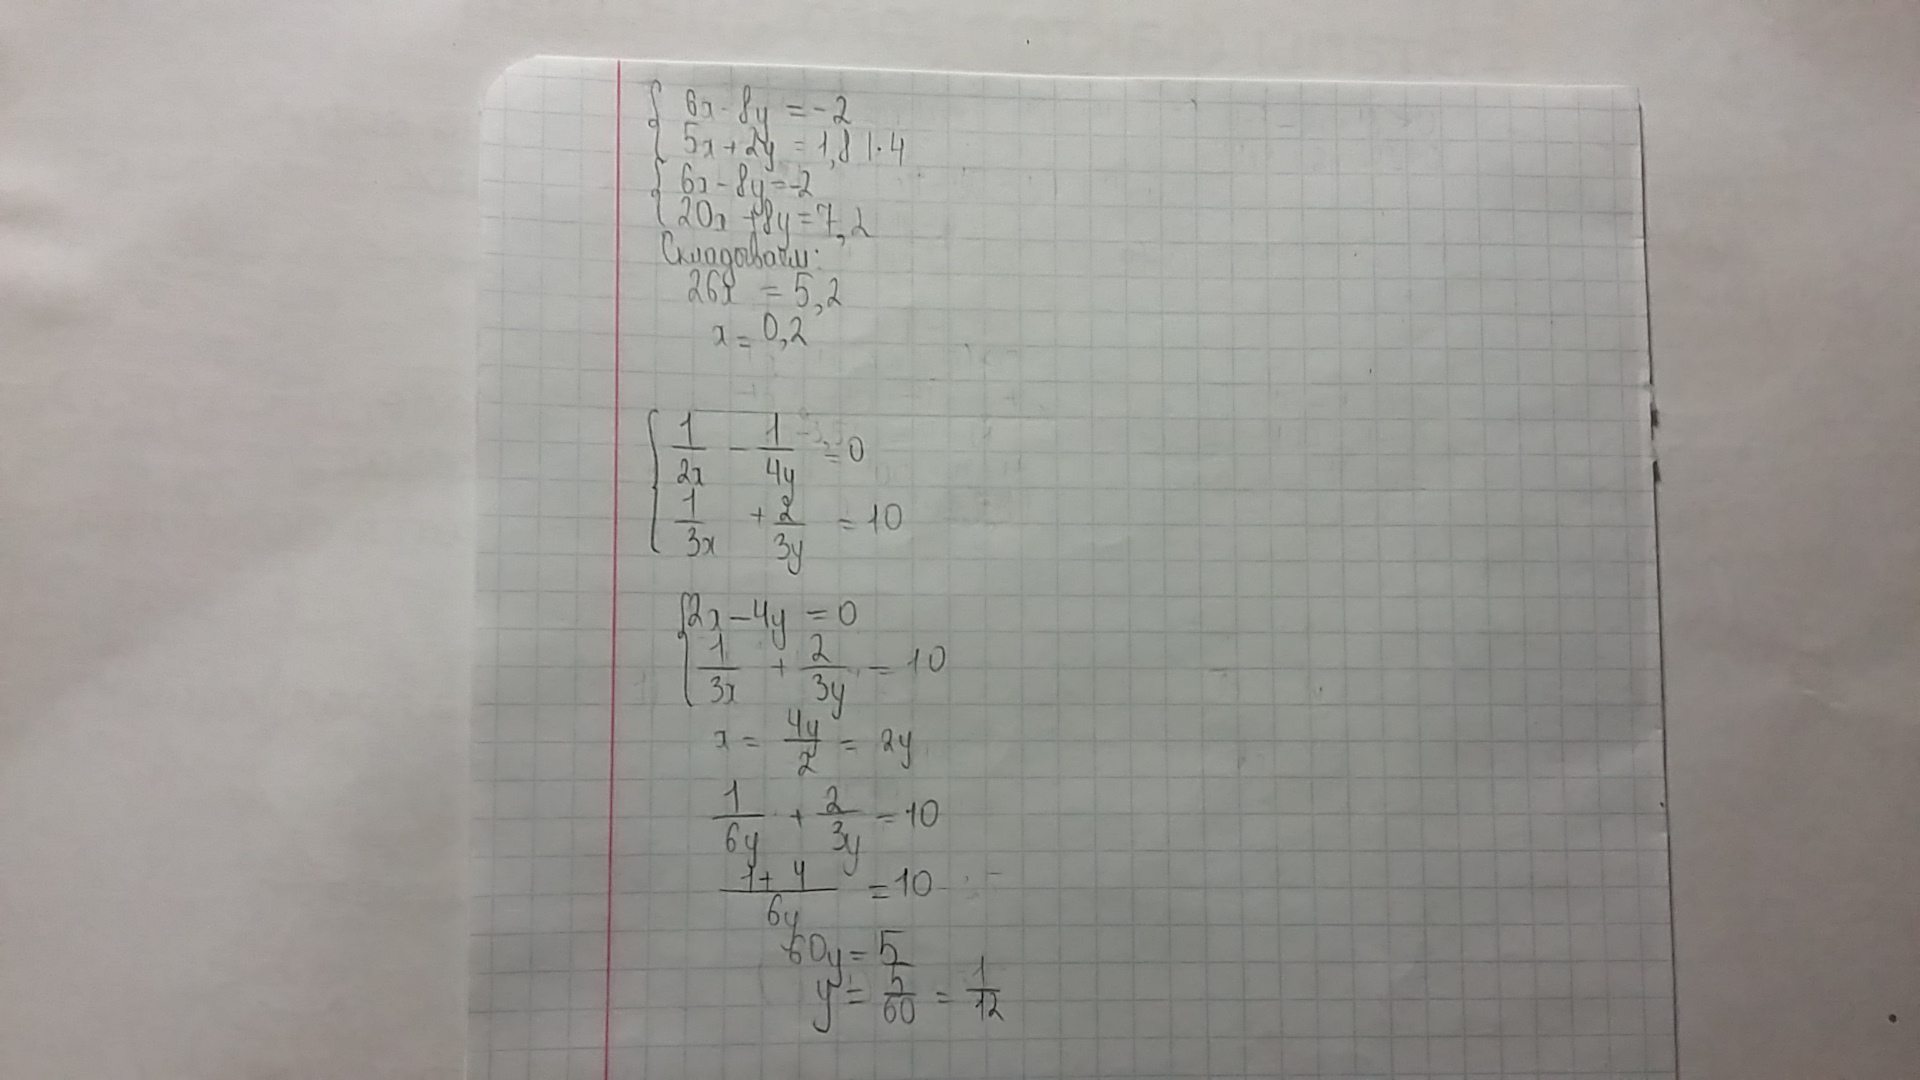 6x - 8y = -2
5x + 2y = 1,8 | · 4
6x - 8y = -2
20x + 8y = 7,2
Складываем:
26x = 5,2
x = 0,2
1/2x - 1/4y = 0
1/3x + 2/3y = 10
2x - 4y = 0
1/3x + 2/3y = 10
x = 4y/2 = 2y
1/6y + 2/3y = 10
1+4/6y = 10
60y = 5
y = 5/60 = 1/12